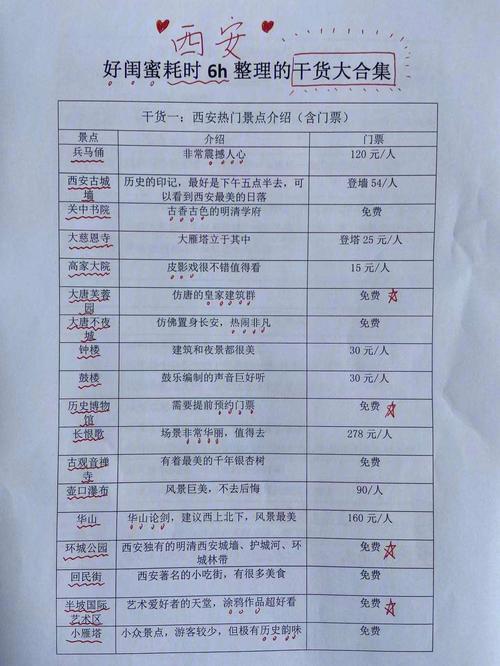 西安
好闺蜜耗时 6h 整理的干货大合集
干货一：西安热门景点介绍（含门票）
景点 介绍 门票
兵马俑 非常震撼人心 120 元/人
西安古城墙 历史的印记，最好是下午五点半去，可以看到西安最美的日落 登墙 54/人
关中书院 古香古色的明清学府 免费
大慈恩寺 大雁塔立于其中 登塔 25 元/人
高家大院 皮影戏很不错值得看 15 元/人
大唐芙蓉园 仿唐的皇家建筑群 免费
大唐不夜城 仿佛置身长安，热闹非凡 免费
钟楼 建筑和夜景都很美 30 元/人
鼓楼 鼓乐编制的声音巨好听 30 元/人
历史博物馆 需要提前预约门票 免费
长恨歌 场景非常华丽，值得去 278 元/人
古观音禅寺 有着最美的千年银杏树 免费
壶口瀑布 风景巨美，不去后悔 90/人
华山 华山论剑，建议西上北下，风景最美 160 元/人
环城公园 西安独有的明清西安城墙、护城河、环城林带 免费
回民街 西安著名的小吃街，有很多美食 免费
半坡国际艺术区 艺术爱好者的天堂，涂鸦作品超好看 免费
小雁塔 小众景点，游客较少，但极有历史韵味 免费